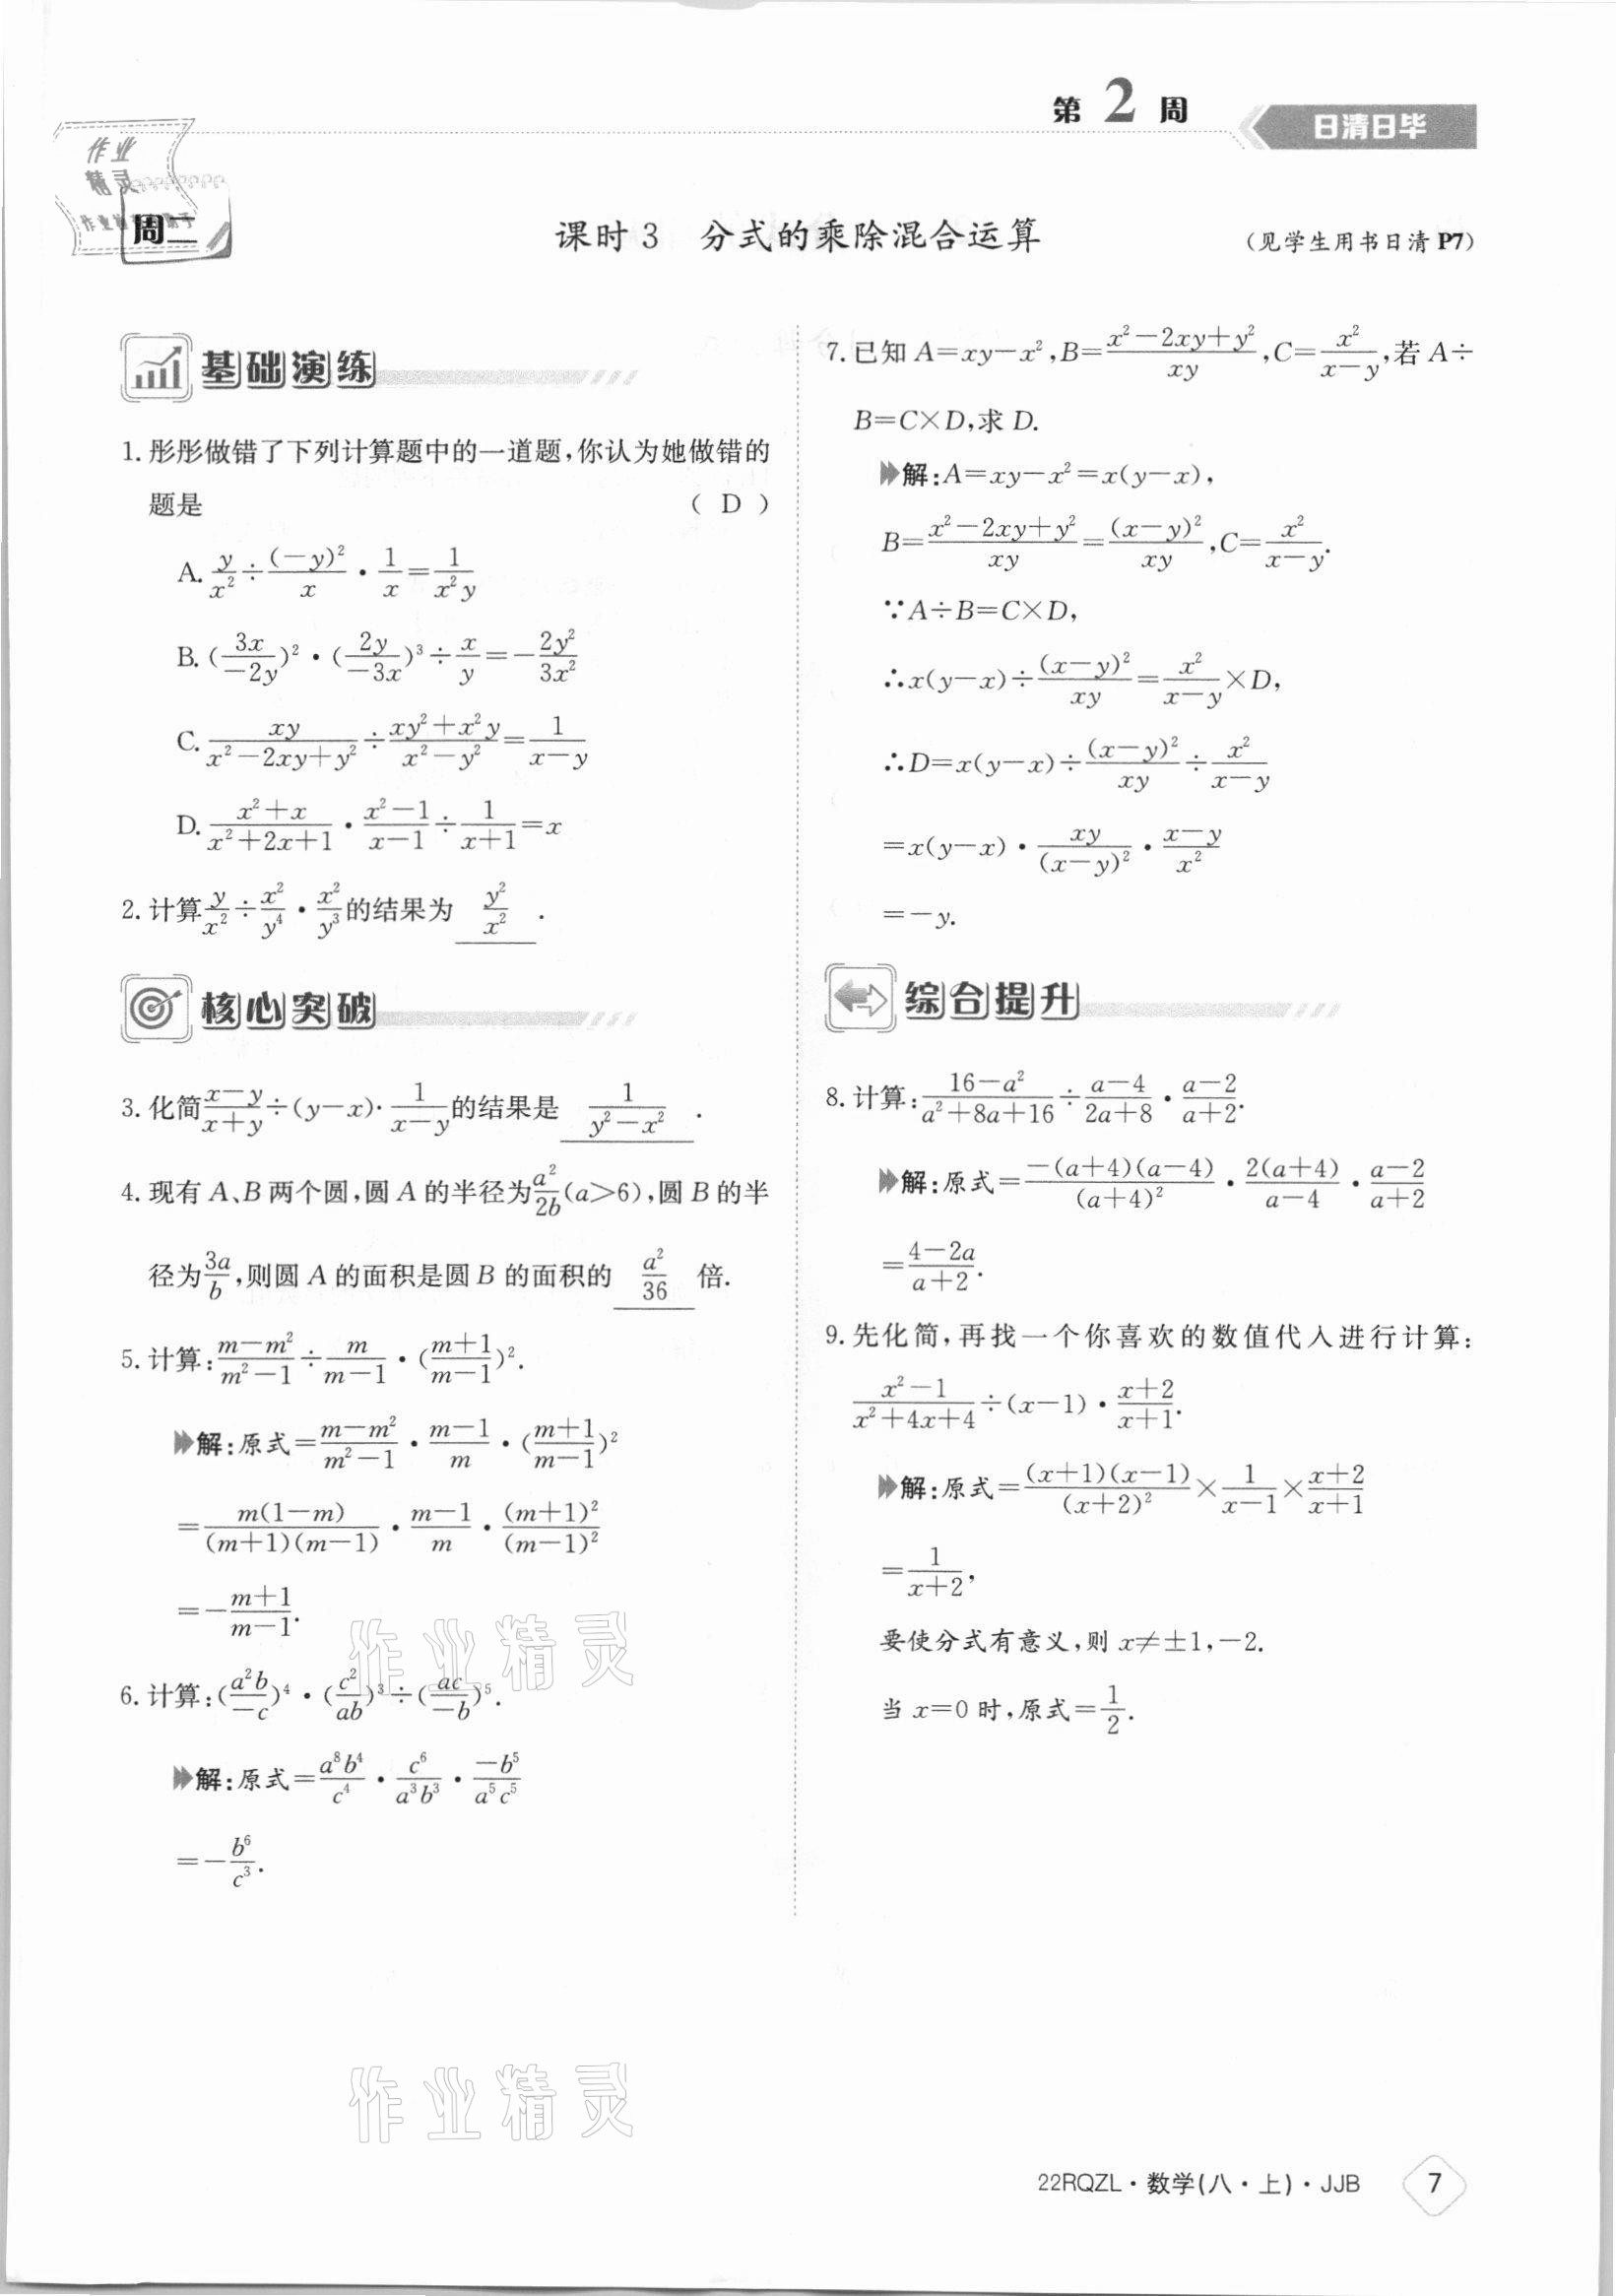 第 2 周
日清日毕
作业
精灵
周二
课时3 分式的乘除混合运算
(见学生用书日清P7)
基础演练
1. 彤彤做错了下列计算题中的一道题,你认为她做错的
题是 ( D )
A. y/x² ÷ (-y)²/x · 1/x = 1/(x²y)
B. (3x/(-2y))² · (2y/(-3x))³ ÷ x/y = -2y²/(3x²)
C. xy/(x²-2xy+y²) ÷ (xy²+x²y)/(x²-y²) = 1/(x-y)
D. (x²+x)/(x²+2x+1) · (x²-1)/(x-1) ÷ 1/(x+1) = x
2. 计算 y/x² ÷ x²/y⁴ · x²/y³ 的结果为 y²/x² .
核心突破
3. 化简 (x-y)/(x+y) ÷ (y-x) · 1/(x-y) 的结果是 1/(y²-x²) .
4. 现有 A、B 两个圆,圆 A 的半径为 a²/(2b) (a>6),圆 B 的半
径为 3a/b,则圆 A 的面积是圆 B 的面积的 a²/36 倍.
5. 计算: (m-m²)/(m²-1) ÷ m/(m-1) · ((m+1)/(m-1))².
解:原式= (m-m²)/(m²-1) · (m-1)/m · ((m+1)/(m-1))²
= m(1-m)/((m+1)(m-1)) · (m-1)/m · (m+1)²/(m-1)²
= -(m+1)/(m-1).
6. 计算: (a²b/(-c))⁴ · (c²/(ab))³ ÷ (ac/(-b))⁵.
解:原式= a⁸b⁴/c⁴ · c⁶/(a³b³) · -b⁵/(a⁵c⁵)
= -b⁶/c³.
7. 已知 A=xy-x², B=(x²-2xy+y²)/(xy), C=x²/(x-y),若 A÷
B=C×D,求 D.
解:A=xy-x²=x(y-x),
B=(x²-2xy+y²)/(xy)=(x-y)²/(xy), C=x²/(x-y).
∵A÷B=C×D,
∴x(y-x)÷(x-y)²/(xy)=x²/(x-y)×D,
∴D=x(y-x)÷(x-y)²/(xy)÷x²/(x-y)
=x(y-x)·xy/(x-y)²·(x-y)/x²
=-y.
综合提升
8. 计算: (16-a²)/(a²+8a+16) ÷ (a-4)/(2a+8) · (a-2)/(a+2).
解:原式= -(a+4)(a-4)/(a+4)² · 2(a+4)/(a-4) · (a-2)/(a+2)
= (4-2a)/(a+2).
9. 先化简,再找一个你喜欢的数值代入进行计算:
(x²-1)/(x²+4x+4) ÷ (x-1) · (x+2)/(x+1).
解:原式= (x+1)(x-1)/(x+2)² × 1/(x-1) × (x+2)/(x+1)
= 1/(x+2),
要使分式有意义,则 x≠±1,-2.
当 x=0 时,原式=1/2.
作业精灵
作业精灵
22RQZL·数学(八·上)·JJB 7